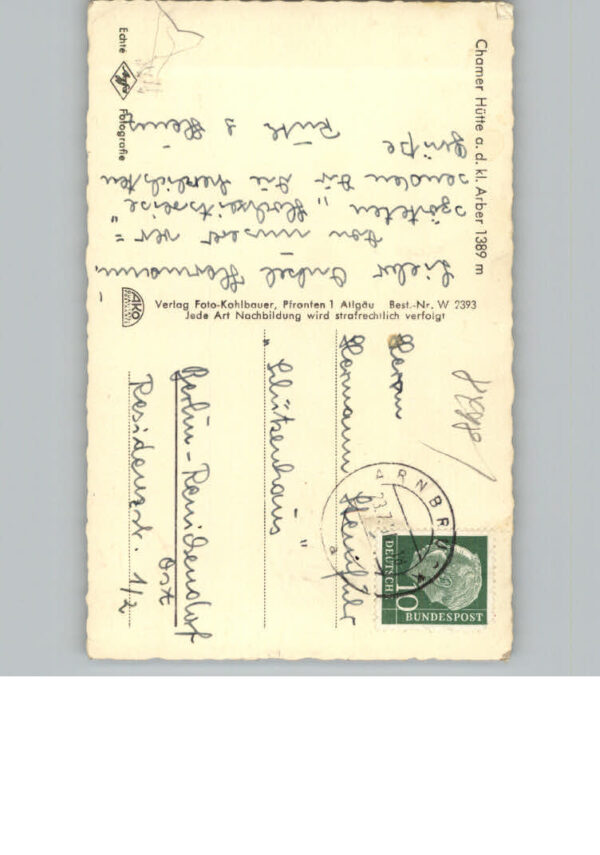 Chamer Hütte a. d. kl. Arber 1389 m
Lieber Onkel Hermann,
von unser "ver
späteten" Hochzeitsreise
senden Dir die herzlichsten
Grüße
Ruth & Heinz
Echte Agfa Fotografie
AKO
Verlag Foto-Kohlbauer, Pfronten 1 Allgäu Best.-Nr. W 2393
Jede Art Nachbildung wird strafrechtlich verfolgt
Herrn
Hermann
"Schützenhaus"
Berlin-Reinickendorf
Ost
Residenzstr. 1/2
ARNBRU
23.7.
a
10
DEUTSCHE
BUNDESPOST